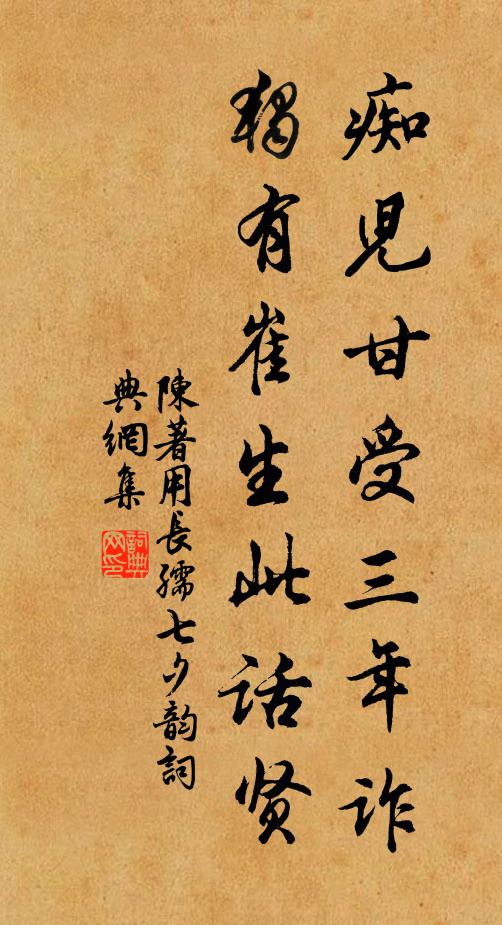 痴児甘受三年诈
独有崔生此话贤
陳著用長孺七夕韵詞
典網集
詞典網印